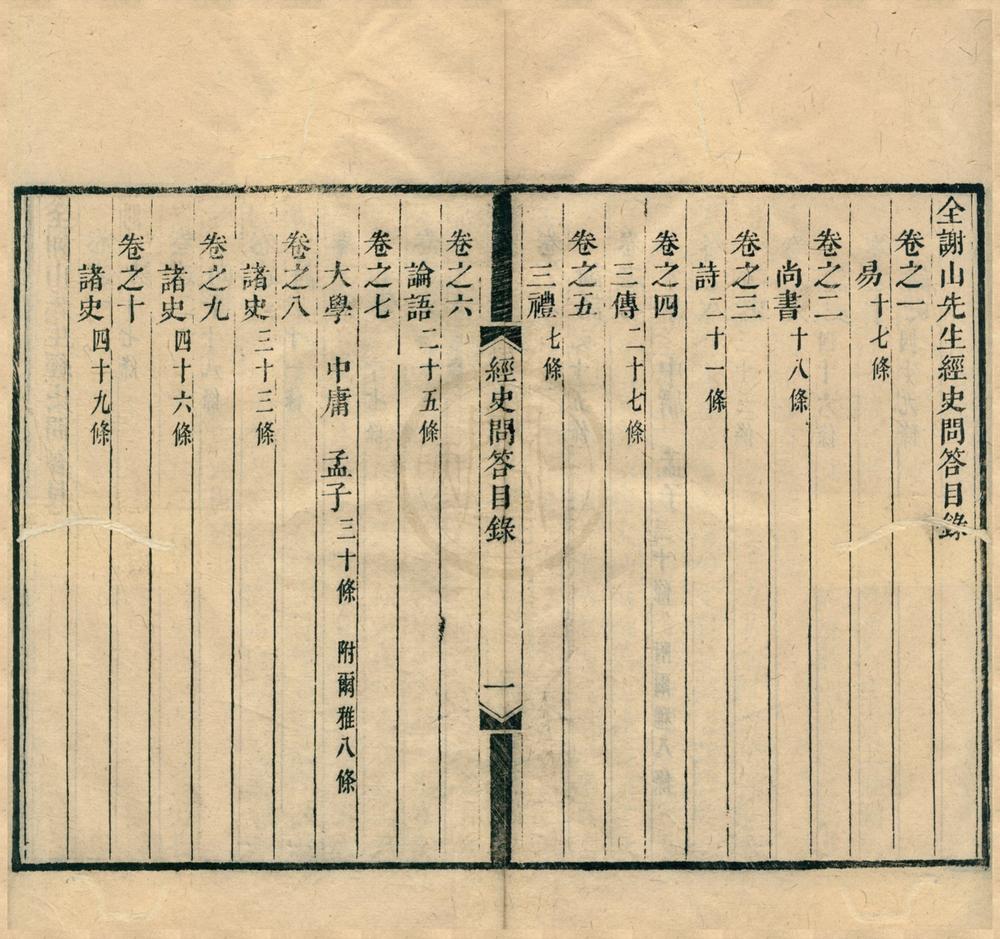 全謝山先生經史問答目錄
卷之一
易十七條
卷之二
尚書十八條
卷之三
詩二十一條
卷之四
三傳二十七條
卷之五
三禮七條
經史問答目錄
一
卷之六
論語二十五條
卷之七
大學 中庸 孟子三十條 附爾雅八條
卷之八
諸史三十三條
卷之九
諸史四十六條
卷之十
諸史四十九條